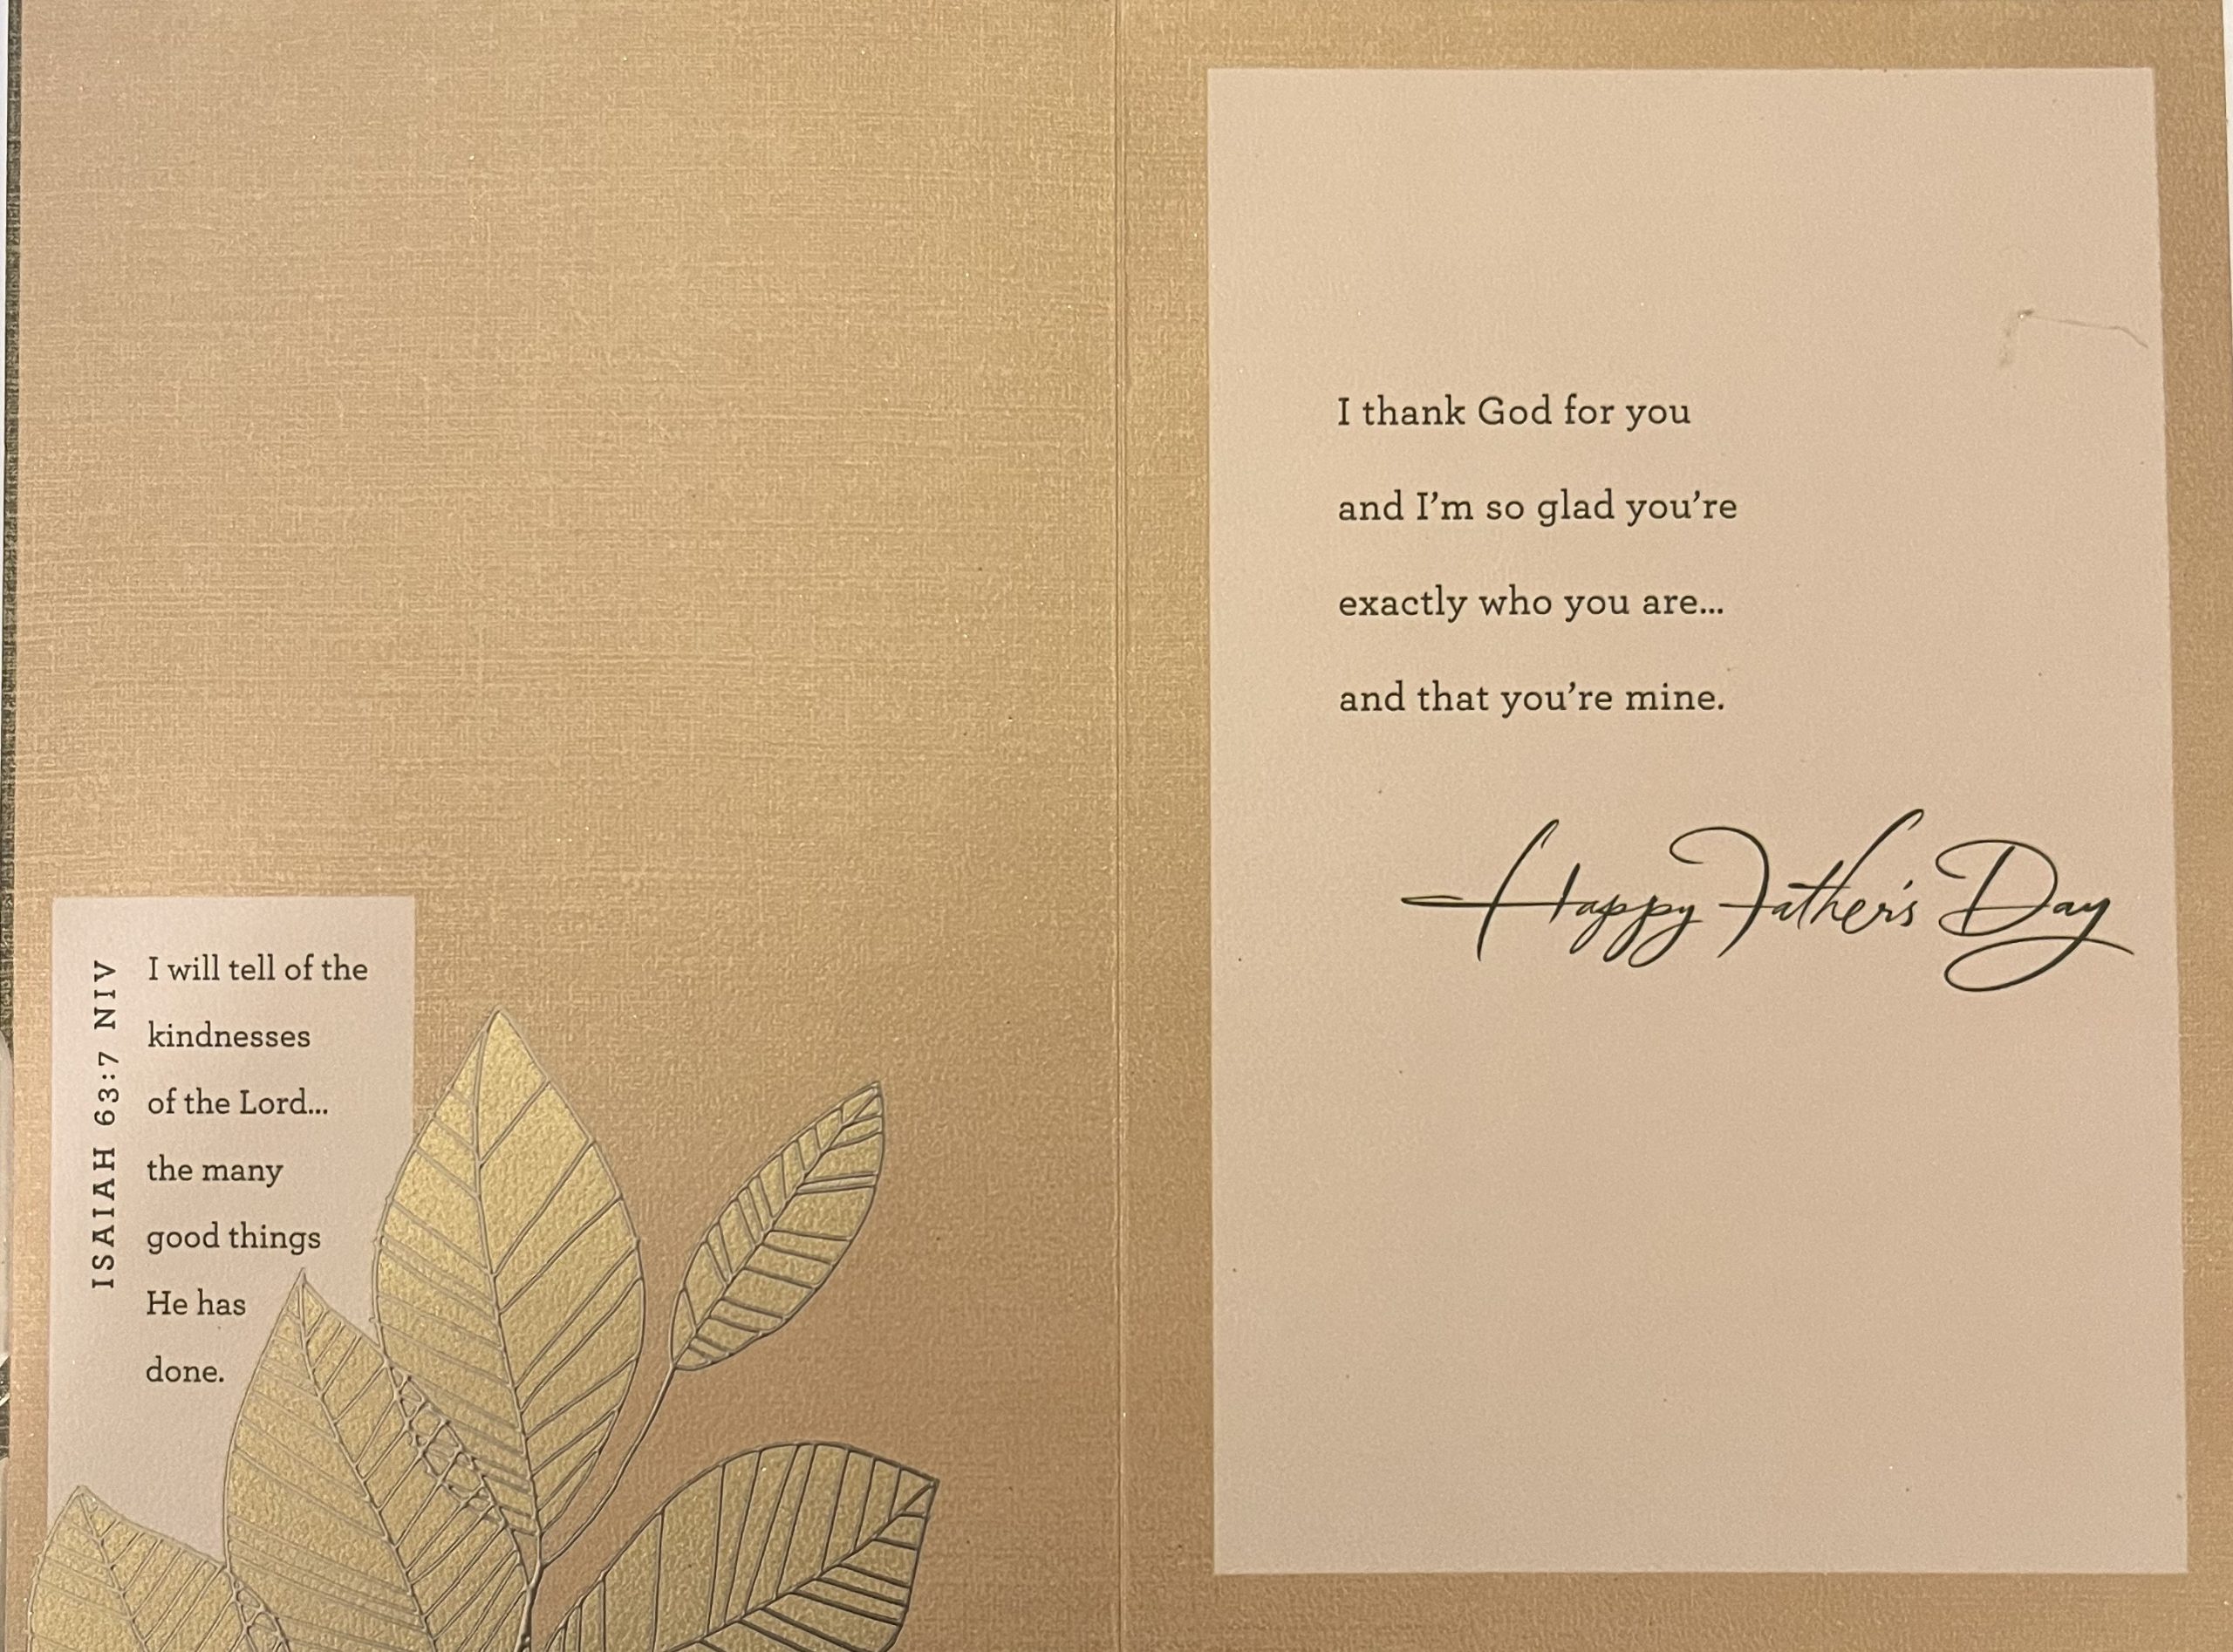 ISAIAH 63:7 NIV
I will tell of the
kindnesses
of the Lord...
the many
good things
He has
done.
I thank God for you
and I’m so glad you’re
exactly who you are...
and that you’re mine.
Happy Father’s Day